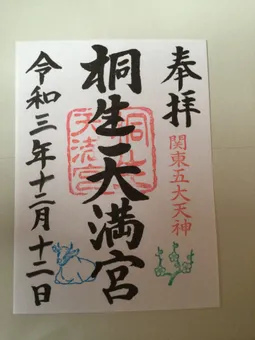 奉拝
関東五大天神
桐生天満宮
桐生天満宮
令和三年十二月十二日